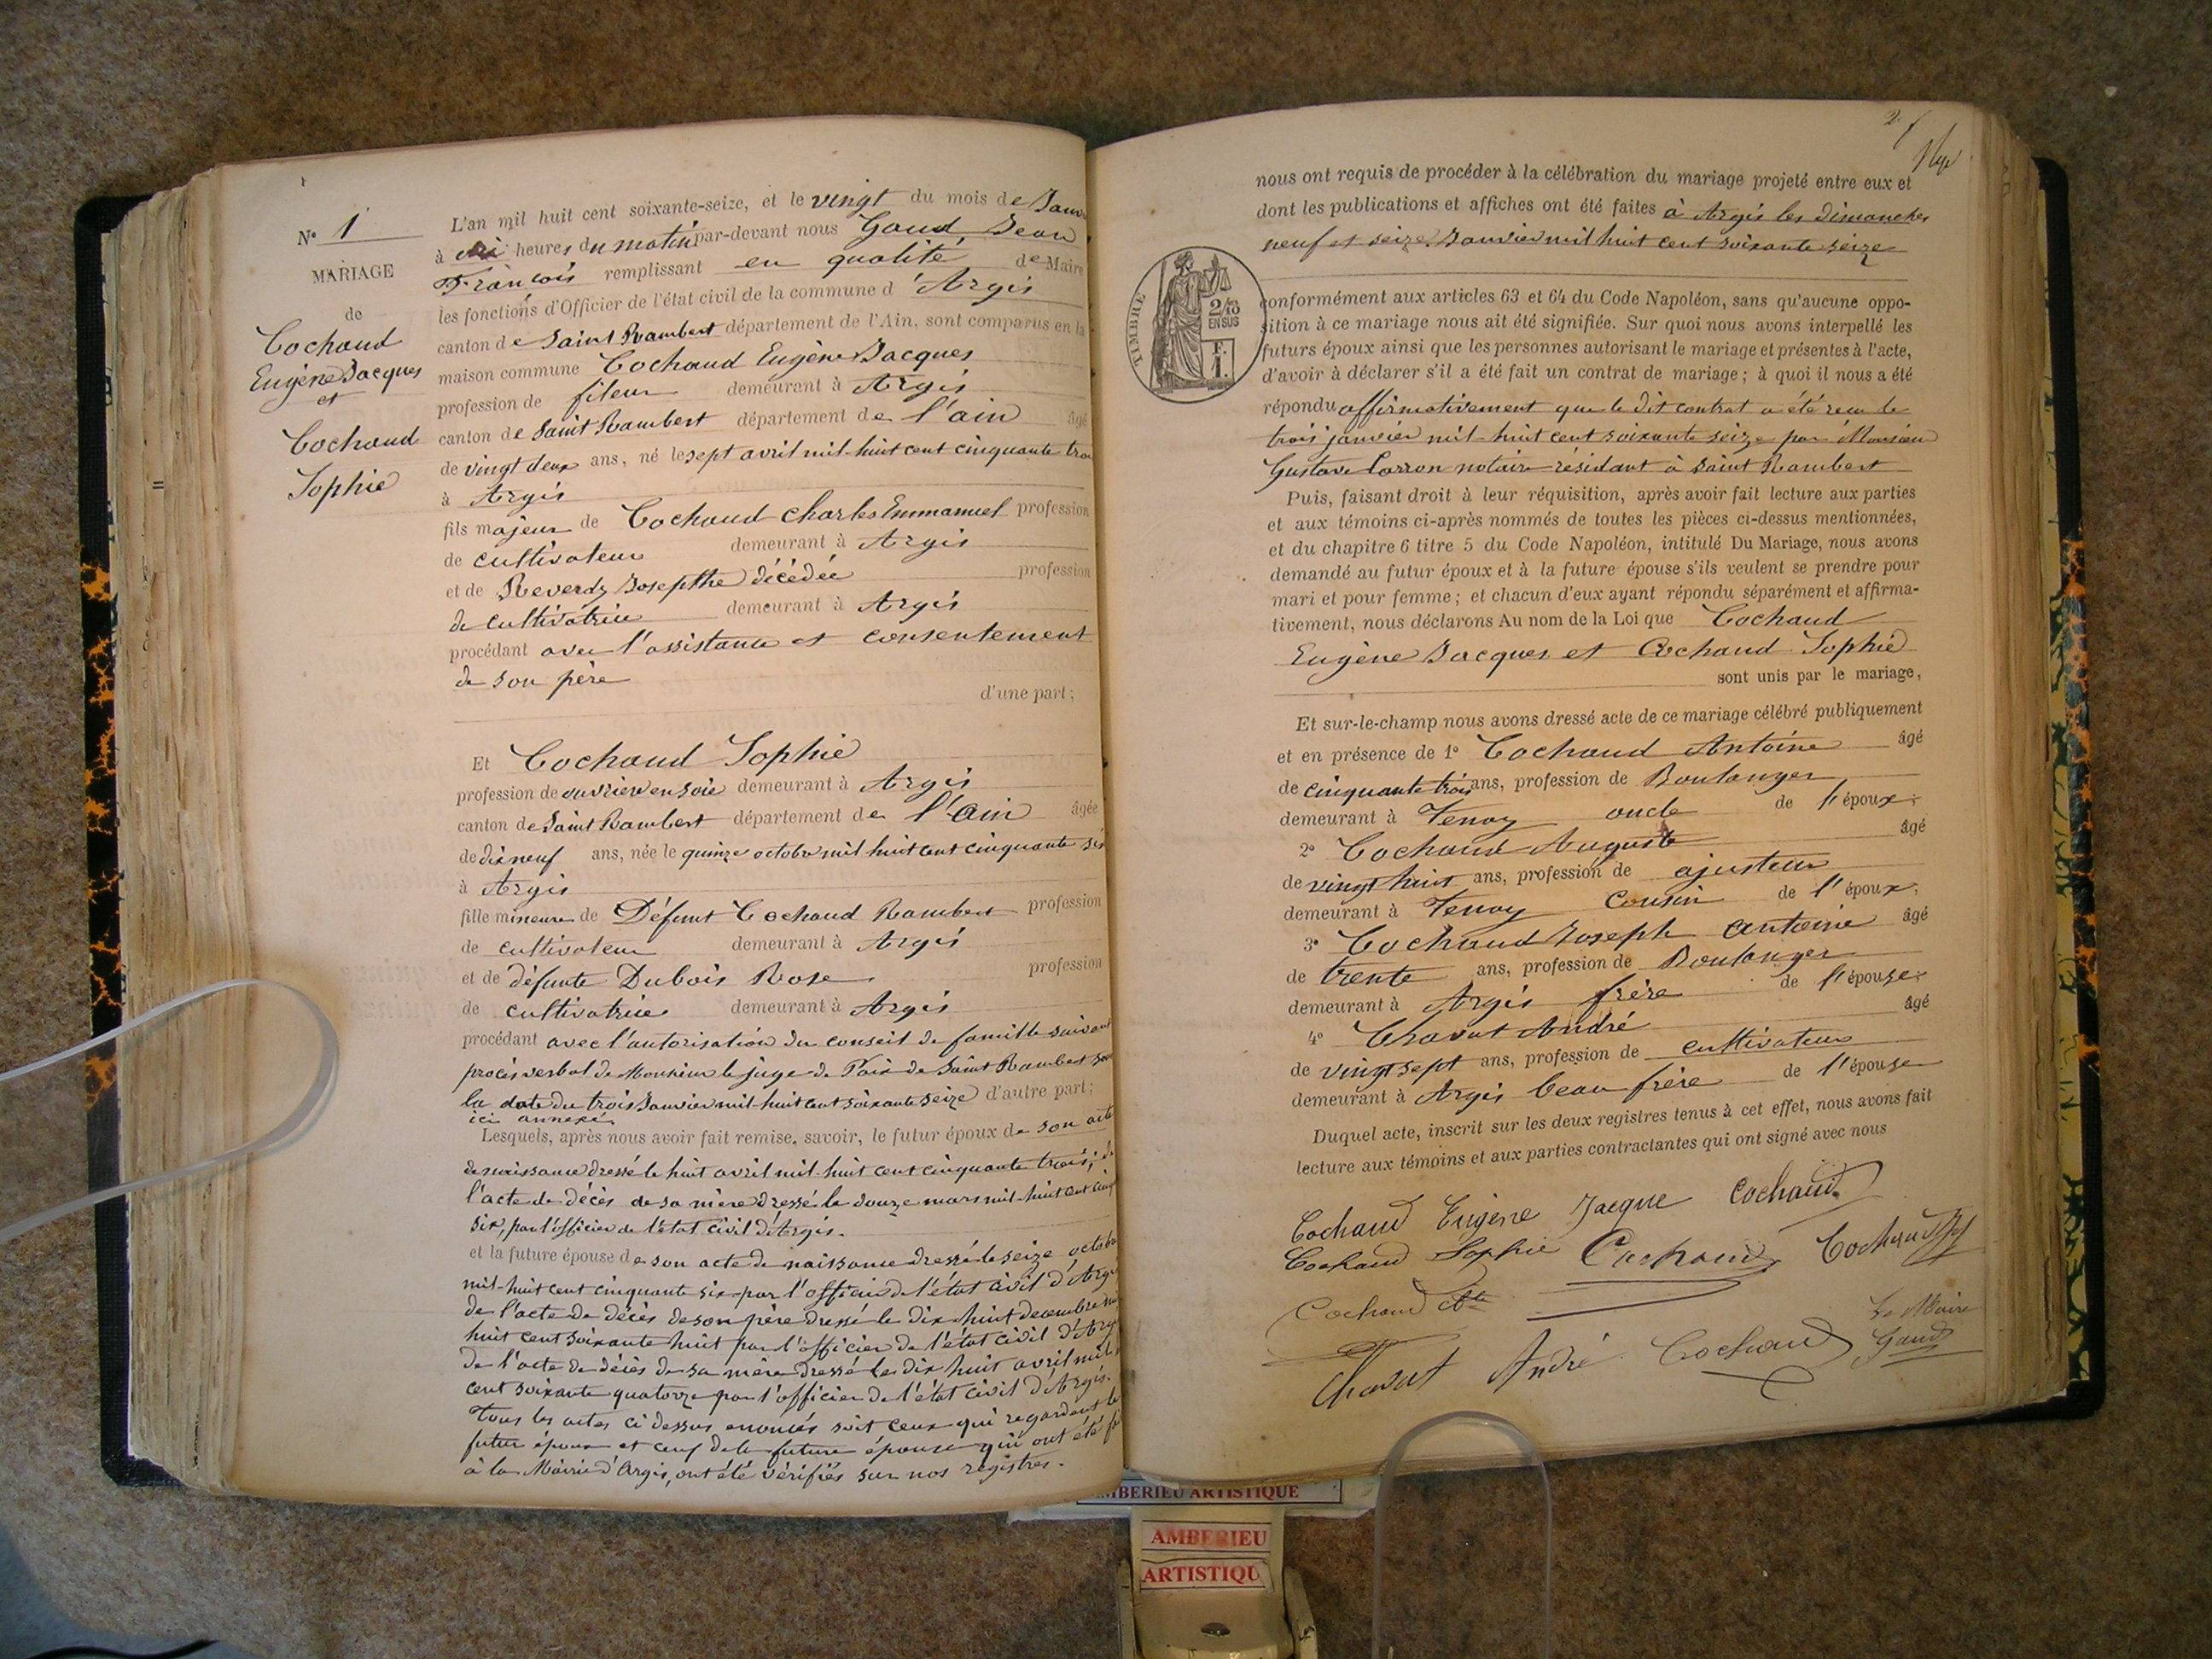 N° 1
MARIAGE
de
Cochaud
Eugène Jacques
et
Cochaud
Sophie
L'an mil huit cent soixante-seize, et le vingt du mois de Janv
à heures du matin par-devant nous Gaud Jean
François remplissant en qualité de Maire
les fonctions d'Officier de l'état civil de la commune d'Argis
canton de Saint Rambert département de l'Ain, sont comparus en la
maison commune Cochaud Eugène Jacques
profession de fileur demeurant à Argis
canton de Saint Rambert département de l'ain âgé
de vingt deux ans, né le sept avril mil huit cent cinquante troi
à Argis
fils majeur de Cochaud Charles Emmanuel profession
de cultivateur demeurant à Argis
et de Reverdy Josepthe décédée profession
de cultivatrice demeurant à Argis
procédant avec l'assistance et consentement
de son père
d'une part;
Et Cochaud Sophie
profession de ouvrière en soie demeurant à Argis
canton de Saint Rambert département de l'Ain âgée
de dix neuf ans, née le quinze octobre mil huit cent cinquante six
à Argis
fille mineure de Défunt Cochaud Rambert profession
de cultivateur demeurant à Argis
et de défunte Dubois Rose profession
de cultivatrice demeurant à Argis
procédant avec l'autorisation du conseil de famille suivant
procès verbal de Monsieur le juge de Paix de Saint Rambert sous
la date du trois Janvier mil huit cent soixante seize d'autre part;
ici annexé
Lesquels, après nous avoir fait remise, savoir, le futur époux de son acte
de naissance dressé le huit avril mil huit cent cinquante trois; de
l'acte de décès de sa mère dressé le douze mars mil huit cent cinq
six, par l'officier de l'état civil d'Argis.
et la future épouse de son acte de naissance dressé le seize octobre
mil-huit cent cinquante six par l'officier de l'état civil d'Argis
de l'acte de décès de son père dressé le dix huit decembre mil
huit cent soixante huit par l'officier de l'état civil d'Argis
de l'acte de décès de sa mère dressé le dix huit avril mil h
cent soixante quatorze par l'officier de l'état civil d'Argis.
Tous les actes ci dessus enoncés soit ceux qui regardent le
futur époux et ceux de la future épouse qui ont été fai
à la Mairie d'Argis, ont été vérifiés sur nos registres.
2
nous ont requis de procéder à la célébration du mariage projeté entre eux et
dont les publications et affiches ont été faites à Argis les dimanches
neuf et seize Janvier mil huit cent soixante seize
TIMBRE
2/10
EN SUS
F.
1.
conformément aux articles 63 et 64 du Code Napoléon, sans qu'aucune oppo-
sition à ce mariage nous ait été signifiée. Sur quoi nous avons interpellé les
futurs époux ainsi que les personnes autorisant le mariage et présentes à l'acte,
d'avoir à déclarer s'il a été fait un contrat de mariage; à quoi il nous a été
répondu affirmativement que le dit contrat a été recu le
trois janvier mil-huit cent soixante seize par Monsieur
Gustave Carron notaire résidant à Saint Rambert
Puis, faisant droit à leur réquisition, après avoir fait lecture aux parties
et aux témoins ci-après nommés de toutes les pièces ci-dessus mentionnées,
et du chapitre 6 titre 5 du Code Napoléon, intitulé Du Mariage, nous avons
demandé au futur époux et à la future épouse s'ils veulent se prendre pour
mari et pour femme; et chacun d'eux ayant répondu séparément et affirma-
tivement, nous déclarons Au nom de la Loi que Cochaud
Eugène Jacques et Cochaud Sophie
sont unis par le mariage,
Et sur-le-champ nous avons dressé acte de ce mariage célébré publiquement
et en présence de 1° Cochaud Antoine âgé
de cinquante trois ans, profession de Boulanger
demeurant à Tenay oncle de l'époux;
2° Cochaud Auguste âgé
de vingt huit ans, profession de ajusteur
demeurant à Tenay Cousin de l'époux;
3° Cochaud Joseph Antoine âgé
de trente ans, profession de Boulanger
demeurant à Argis frère de l'épouse;
4° Chavat André âgé
de vingt sept ans, profession de cultivateur
demeurant à Argis beau frère de l'épouse
Duquel acte, inscrit sur les deux registres tenus à cet effet, nous avons fait
lecture aux témoins et aux parties contractantes qui ont signé avec nous
Cochaud Eugène Jacque Cochaud
Cochaud Sophie Cochaud Cochaud
Cochaud Ate
Le Maire
Chavat André Cochaud Gaud
AMBERIEU ARTISTIQUE
AMBERIEU
ARTISTIQU